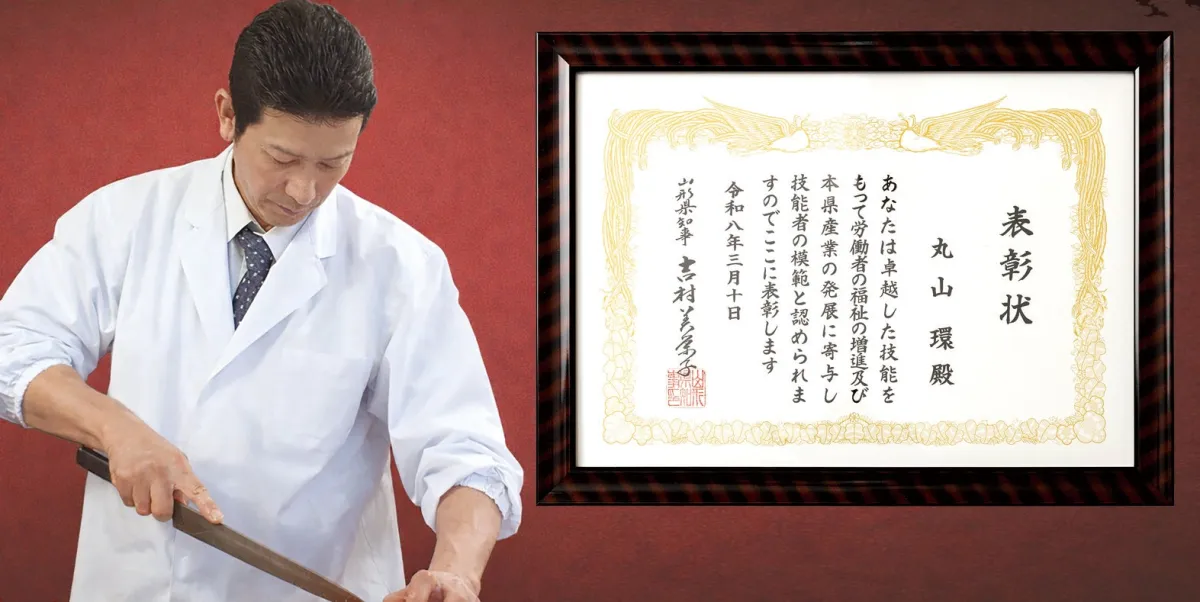 表彰状
丸山環殿
あなたは卓越した技能を
もって労働者の福祉の増進及び
本県産業の発展に寄与し
技能者の模範と認められま
すのでここに表彰します
令和八年三月十日
山形県知事 吉村美栄子